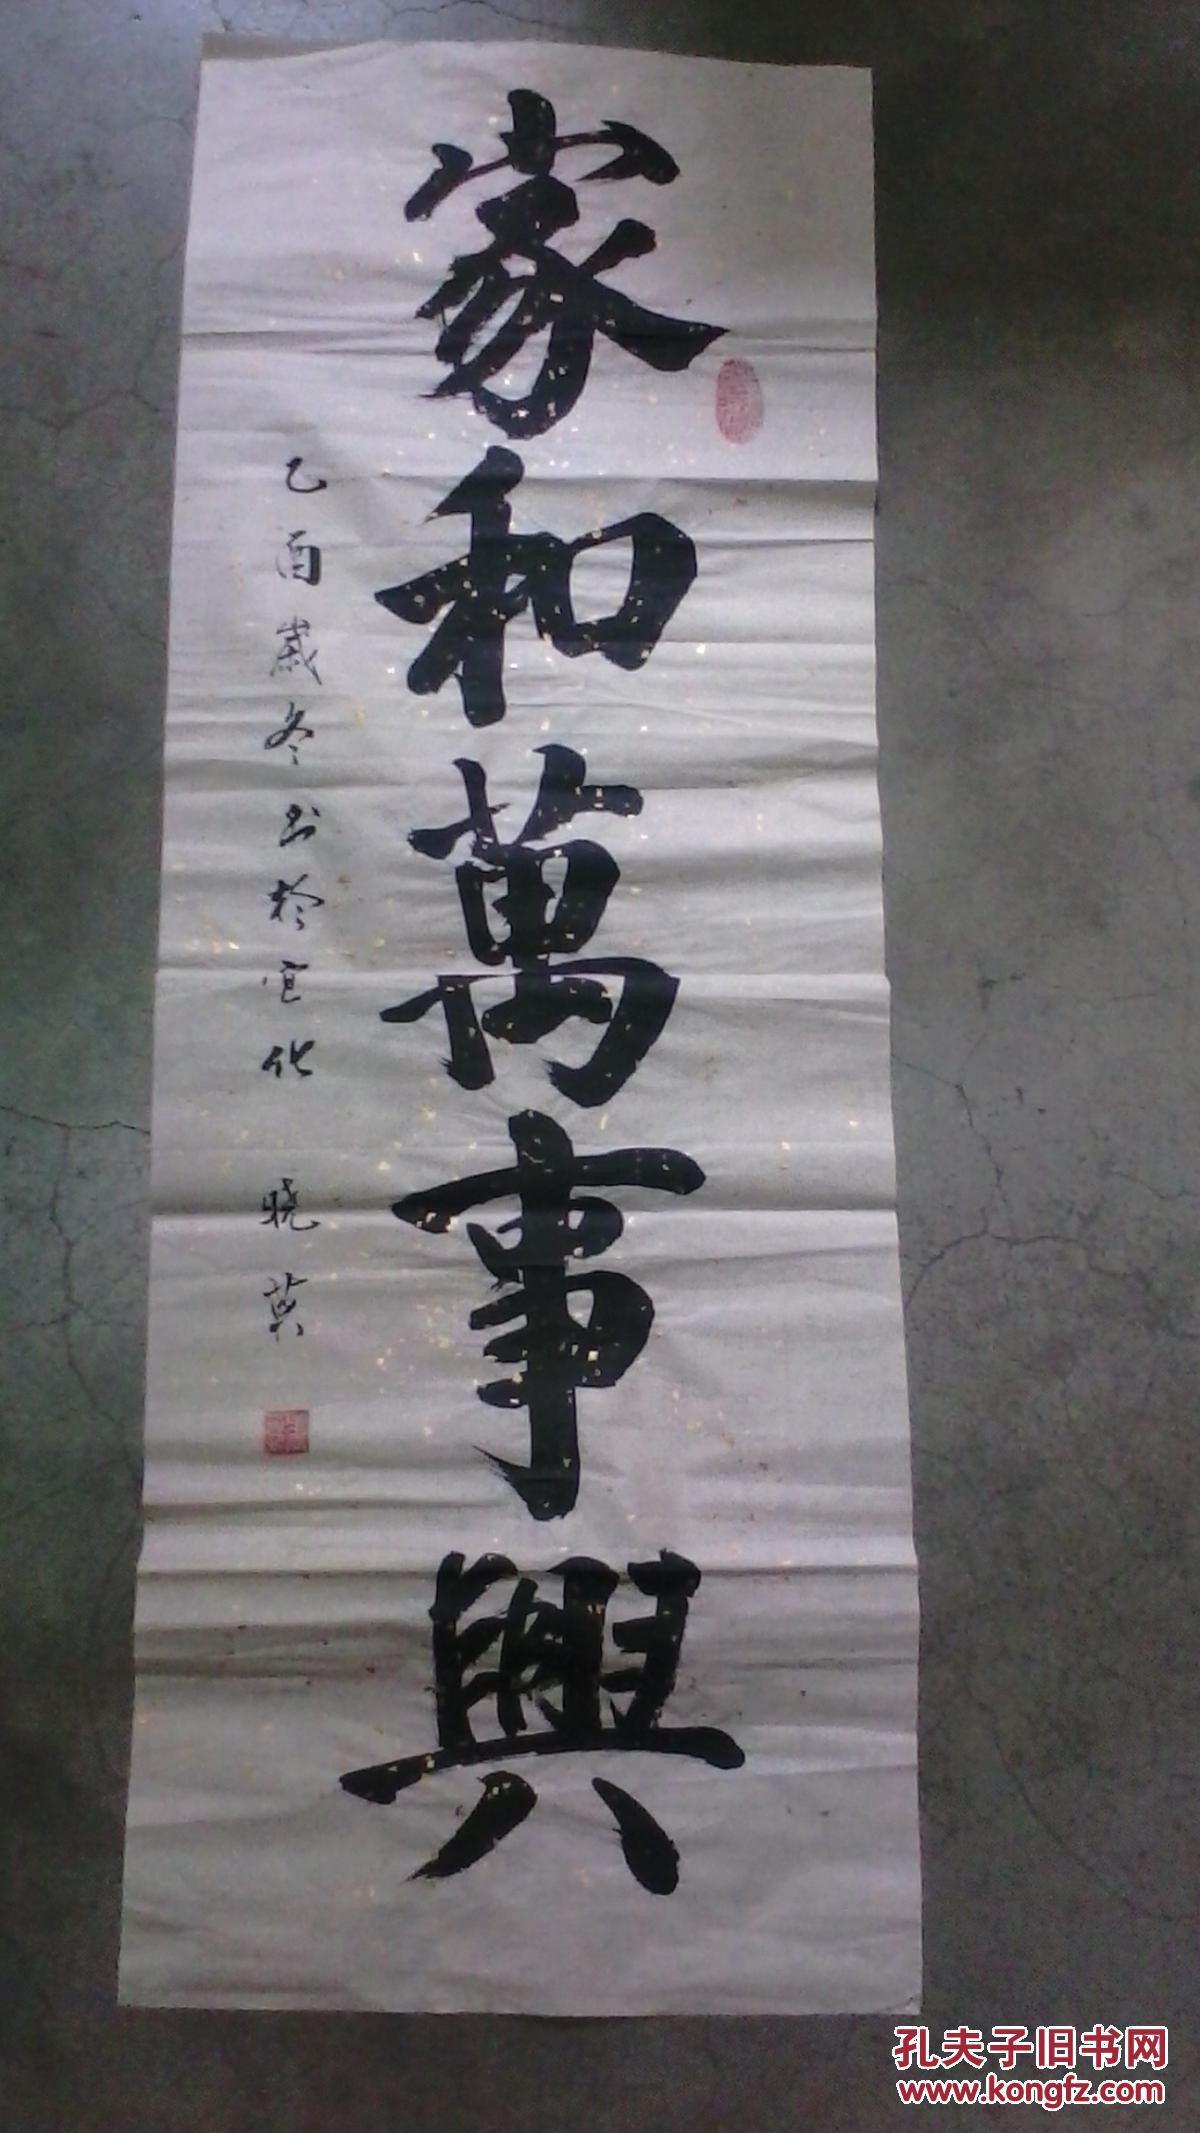 家和萬事興
乙酉歲冬书於宣化 晓英
孔夫子旧书网
www.kongfz.com